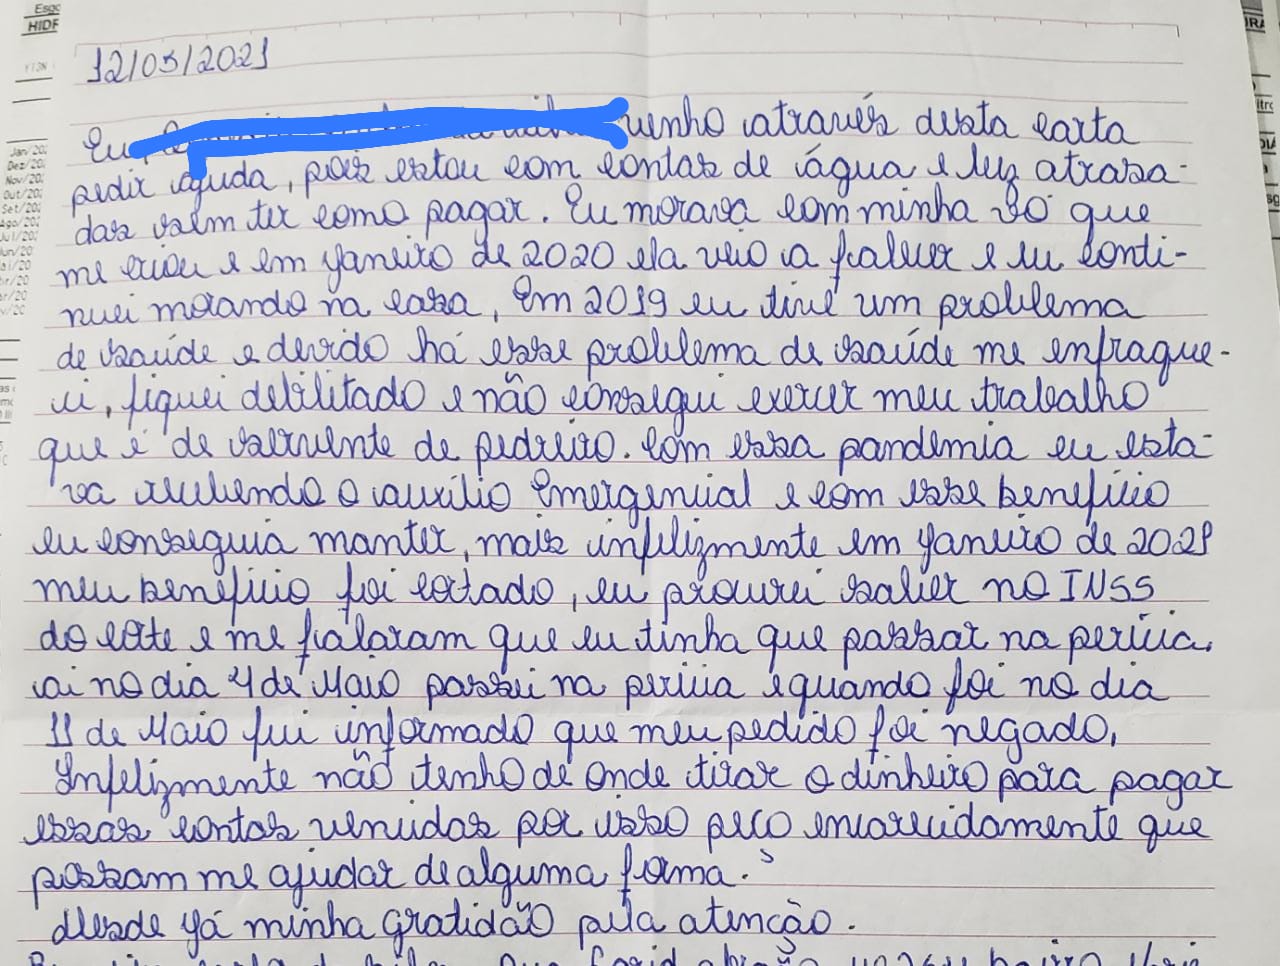 12/05/2021
Eu, venho através desta carta
pedir ajuda, pois estou com contas de água e luz atrasa-
das sem ter como pagar. Eu morava com minha vó que
me criou e em janeiro de 2020 ela veio a falecer e eu conti-
nuei morando na casa, Em 2019 eu tive um problema
de saúde e devido há esse problema de saúde me enfraque-
ci, fiquei debilitado e não consegui exercer meu trabalho
que é de servente de pedreiro. Com essa pandemia eu esta-
va recebendo o auxílio Emergencial e com esse benefício
eu conseguia manter, mais infelizmente em janeiro de 2021
meu benefício foi cortado, eu procurei saber no INSS
do corte e me falaram que eu tinha que passar na perícia,
ai no dia 4 de Maio passei na perícia e quando foi no dia
11 de Maio fui informado que meu pedido foi negado,
Infelizmente não tenho de onde tirar o dinheiro para pagar
essas contas vencidas por isso peço encarecidamente que
possam me ajudar de alguma forma.
desde já minha gratidão pela atenção.